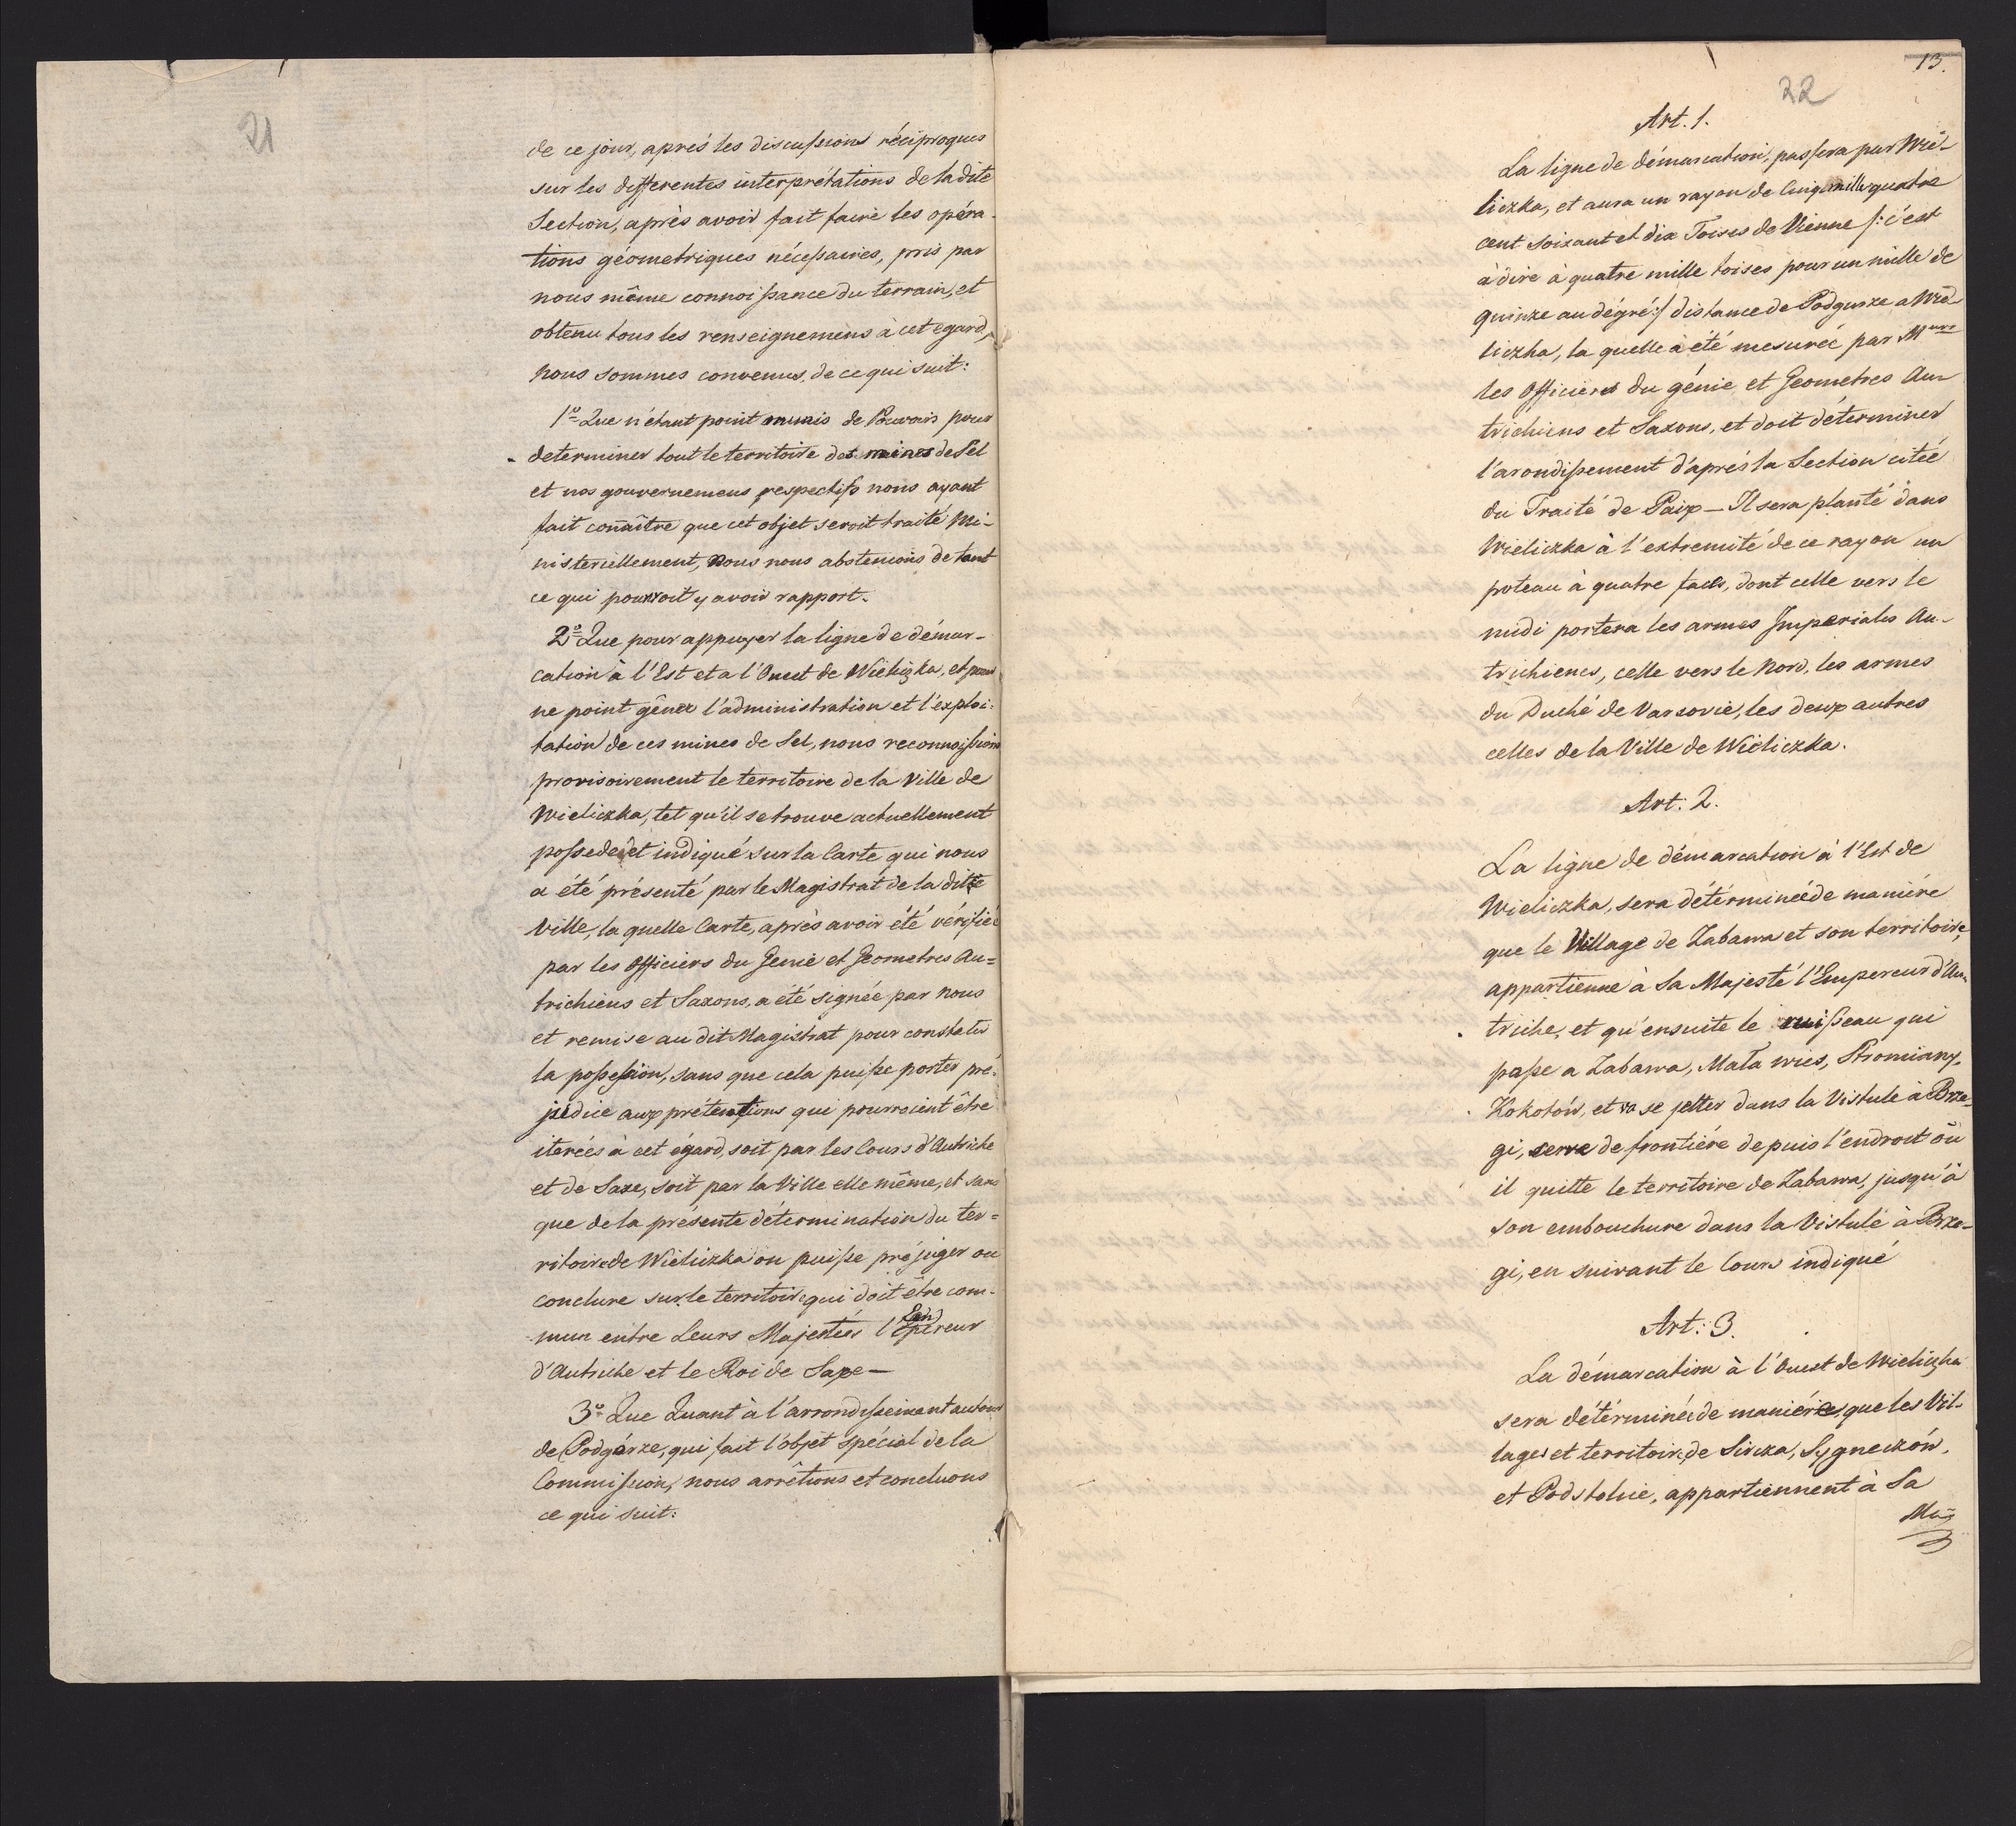 21
de ce jour, aprés les discussions réciproques
sur les differentes interprétations de la dite
Section, après avoir fait faire les opéra-
tions géometriques nécessaires, pris par
nous même connoissance du terrain, et
obtenu tous les renseignemens à cet egard,
nous sommes convenus, de ce qui suit:
1º Que n'étant point munis de Pouvoirs pour
determiner tout le territoire des mines de Sel
et nos gouvernemens respectifs nous ayant
fait conaître que cet objet seroit traité Mi-
nisteriellement, nous nous abstenions de tout
ce qui pourroit y avoir rapport.
2º Que pour appuyer la ligne de démar-
cation à l'Est et a l'Ouest de Wieliczka, et pour
ne point gêner l'administration et l'exploi-
tation de ces mines de Sel, nous reconnoissions
provisoirement le territoire de la Ville de
Wieliczka, tel qu'il se trouve actuellement
possedé et indiqué sur la Carte qui nous
a été présenté par le Magistrat de la ditte
Ville, la quelle Carte, après avoir été vérifiée
par les Officiers du Genie et Geometres Au=
trichiens et Saxons, a été signée par nous
et remise au dit Magistrat pour constater
la possession, sans que cela puisse porter pré-
judice aux prétentions qui pourroient être
iterées à cet égard, soit par les Cours d'Autriche
et de Saxe, soit par la Ville elle même, et sans
que de la présente détermination du ter=
ritoire de Wieliczka on puisse préjuger ou
conclure sur le territoire qui doit être com-
mun entre Leurs Majestés l'Epereur
d'Autriche et le Roi de Saxe—
3º Que Quant à l'arrondissement autour
de Podgórze, qui fait l'objet spécial de la
Commission, nous arrêtons et concluons
ce qui suit:
13.
22
Art. 1.
La ligne de démarcation, passera par Wie-
liczka, et aura un rayon de Cinq mille quatre
cent soixant et dix Toises de Vienne /: c'est
à dire à quatre mille toises pour un mille de
quinze au dégré :/ distance de Podgurze a Wie-
liczka, la quelle à été mesurée par Mrs
les Officiers du génie et Geometres Au-
trichiens et Saxons, et doit déterminer
l'arondissement d'aprés la Section citée
du Traité de Paix — Il sera planté dans
Wieliczka à l'extremité de ce rayon un
poteau à quatre faces, dont celle vers le
midi portera les armes Imperiales Au-
trichienes, celle vers le Nord, les armes
du Duché de Varsovie, les deux autres
celles de la Ville de Wieliczka.
Art: 2.
La ligne de démarcation à l'Est de
Wieliczka, sera déterminée de maniére
que le Village de Zabawa et son territoire,
appartienne à Sa Majesté l'Empereur d'Au-
triche, et qu'ensuite le ruisseau qui
passe a Zabawa, Mała wies, Stromiany,
Kokotów, et va se jetter dans la Vistule à Brze-
gi, serve de frontiére depuis l'endroit où
il quitte le territoire de Zabawa, jusqu'à
son embouchure dans la Vistule à Brze-
gi, en suivant le Cours indiqué
Art: 3.
La démarcation à l'Ouest de Wieliczka
sera déterminée de maniére, que les Vil-
lages et territoire de Sircza, Sygneczów,
et Podstolice, appartiennent à Sa
Maj